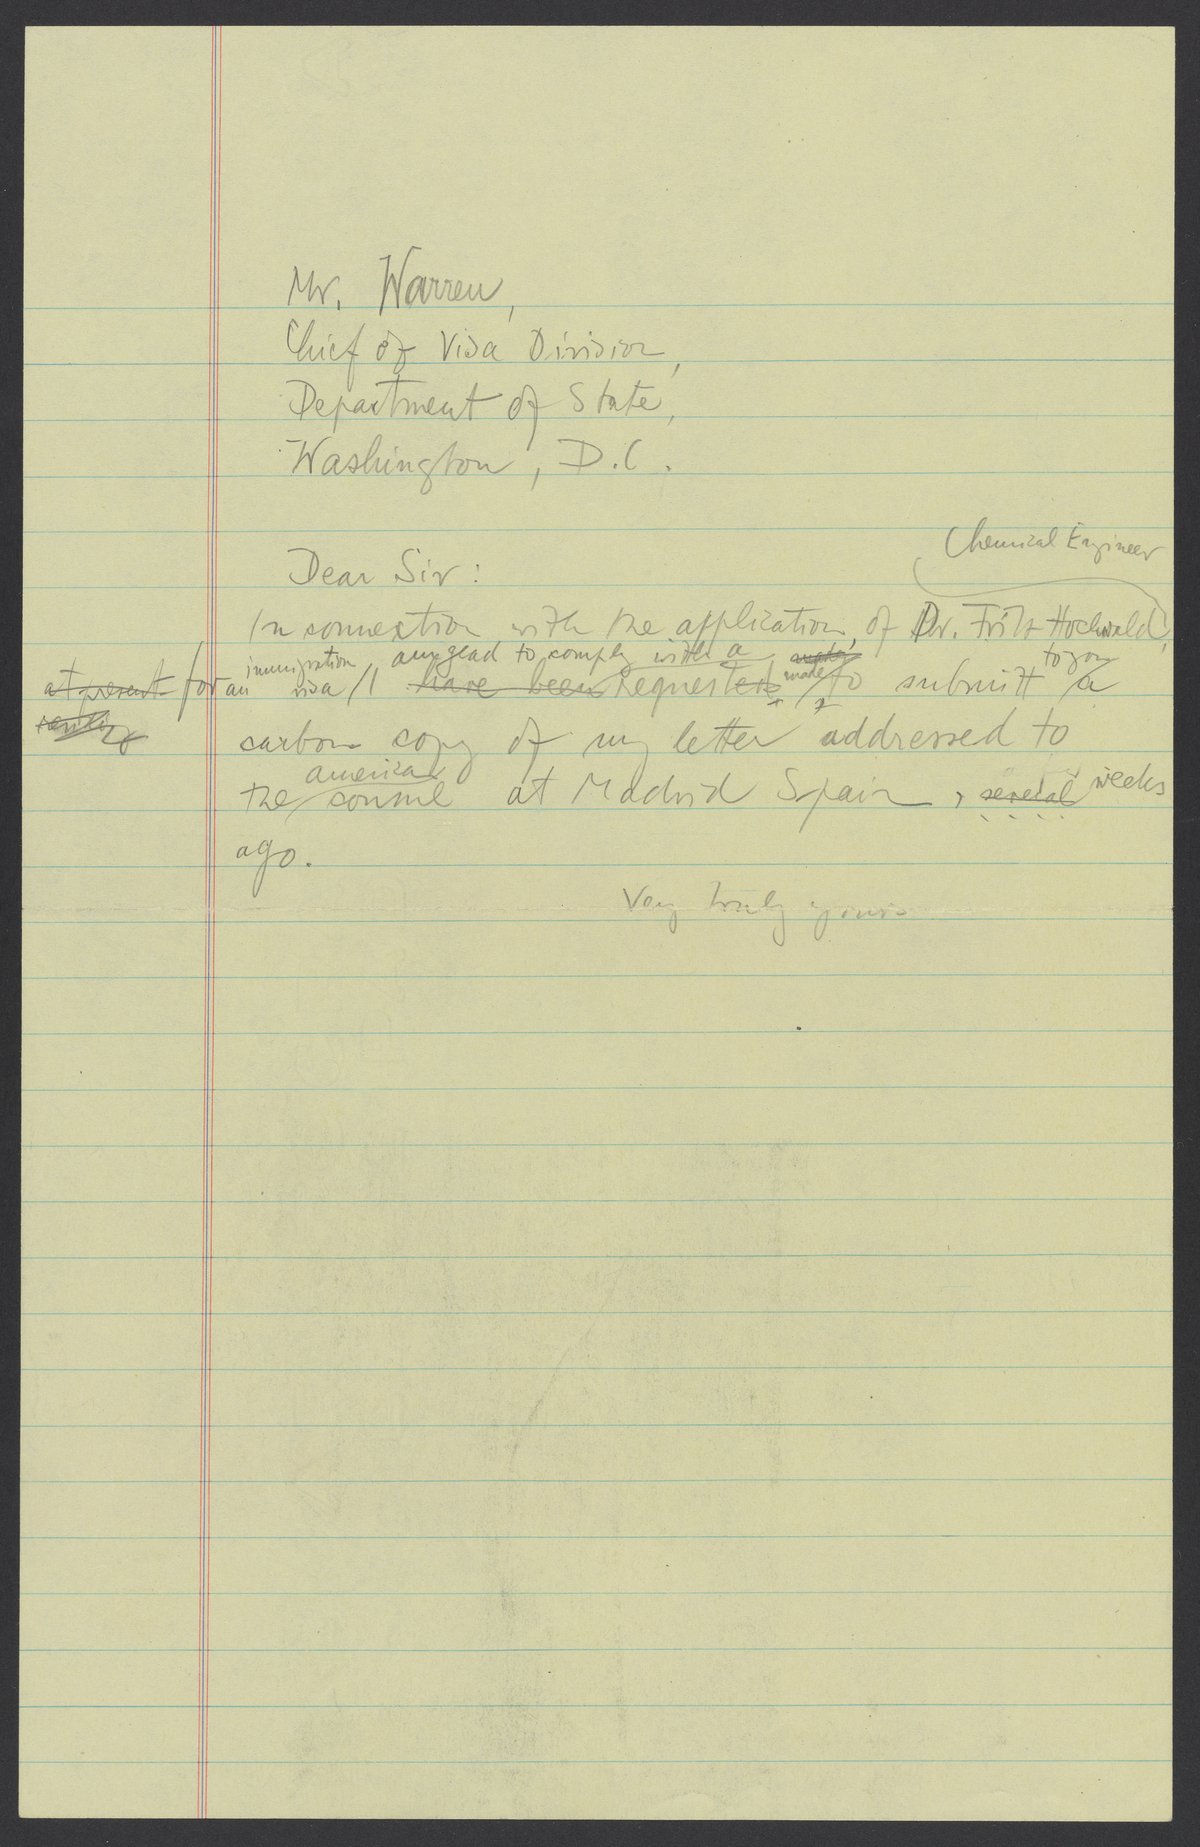 Mr. Warren,
Chief of Visa Division,
Department of State,
Washington, D.C.
Chemical Engineer
Dear Sir:
In connection with the application, of Dr. Fritz Hochwald,
immigration am glad to comply with a made to you
at present for an visa / I have been requested to submitt a
carbon copy of my letter addressed to
american
the consul at Madrid Spain, several weeks
ago.
Very truly yours